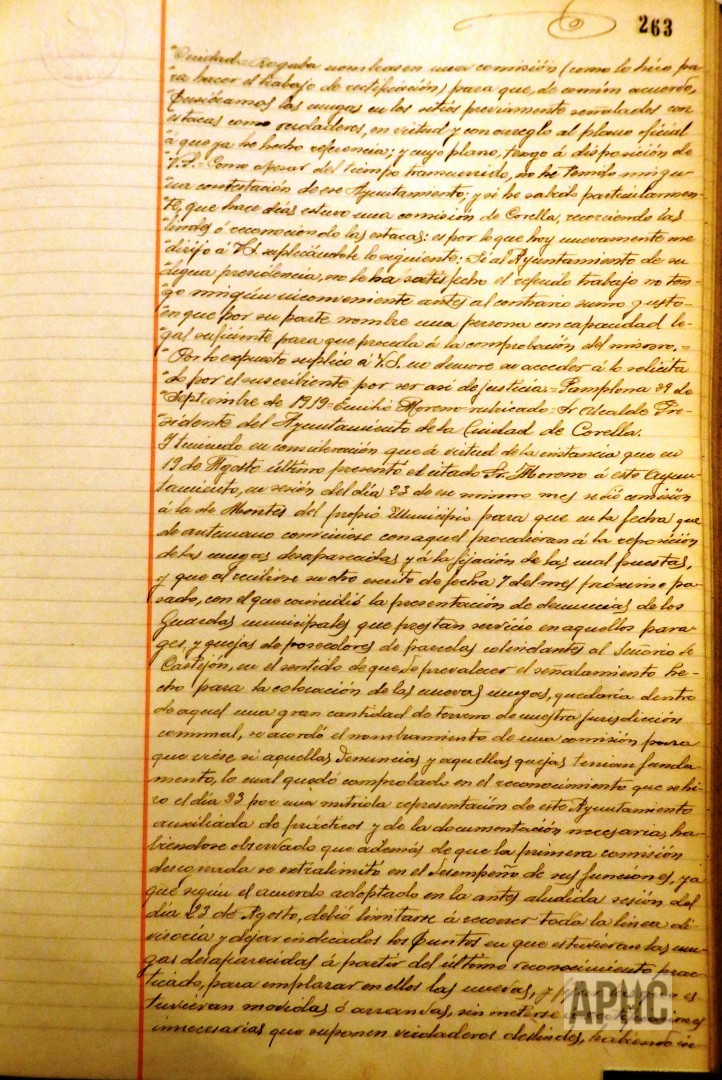 263
"Ciudad= Rogaba nombrasen una comisión (como lo hizo pa-
"ra hacer el trabajo de rectificación) para que, de común acuerdo,
"fusásemos las mugas en los sitios previamente señalados con
"estacas como verdaderos, en virtud y con arreglo al plano oficial
"á que ya he hecho referencia; y cuyo plano, tengo á disposición de
"V.S.= Como apesar del tiempo transcurrido, no he tenido ningu-
"na contestación de ese Ayuntamiento, y si he sabido particularmen-
"te, que hace días estuvo una comisión de Corella, recorriendo las
"lindes ó reconociendo las estacas: es por lo que hoy nuevamente me
"dirijo á V.S. suplicándole lo siguiente: Si al Ayuntamiento de su
"digna presidencia, no le ha satisfecho el referido trabajo no ten-
"go ningún inconveniente antes al contrario sumo gusto
"en que por su parte nombre una persona con capacidad le-
"gal suficiente para que proceda á la comprobación del mismo.=
"Por lo expuesto suplico á V.S. no demore su acceder á lo solicita
"do por el suscribiente por ser así de justicia= Pamplona 29 de
"Septiembre de 1919= Emilio Moreno rubicado= Sr. Alcalde Pre-
"sidente del Ayuntamiento de la Ciudad de Corella.
Y teniendo en consideración que á virtud de la instancia que en
19 de Agosto último presentó el citado Sr. Moreno á este Ayun-
tamiento, en sesión del día 23 de ese mismo mes se dió comisión
á la de Montes del propio Municipio para que en la fecha que
de antemano conviniese con aquel procedieran á la reposición
de las mugas desaparecidas y á la fijación de las mal puestas,
y que al recibirse su otro escrito de fecha 7 del mes próximo pa-
sado, con el que coincidió la presentación de denuncias de los
Guardas municipales que prestan servicio en aquellos para-
ges, y quejas de poseedores de parcelas colindantes al Señorío de
Castejón, en el sentido de que de prevalecer el señalamiento he-
cho para la colocación de las nuevas mugas, quedaría dentro
de aquel una gran cantidad de terreno de nuestra jurisdicción
comunal, se acordó el nombramiento de una comisión para
que viese si aquellas denuncias y aquellas quejas tenían funda-
mento, lo cual quedó comprobado en el reconocimiento que se hi-
zo el día 23 por una nutrida representación de este Ayuntamiento
auxiliada de prácticos y de la documentación necesaria, ha-
biendose observado que además de que la primera comisión
designada se extralimitó en el desempeño de sus funciones, ya
que según el acuerdo adoptado en la antes aludida sesión del
día 23 de Agosto, debió limitarse á recorrer toda la línea di-
visoria y dejar indicados los puntos en que estuvieran las mu-
gas desaparecidas á partir del último reconocimiento prac-
ticado, para emplazar en ellos las nuevas, y es-
tuvieran movidas ó arrancadas, sin meterse
innecesarias que suponen verdaderos deslindes, habiendo
APHC